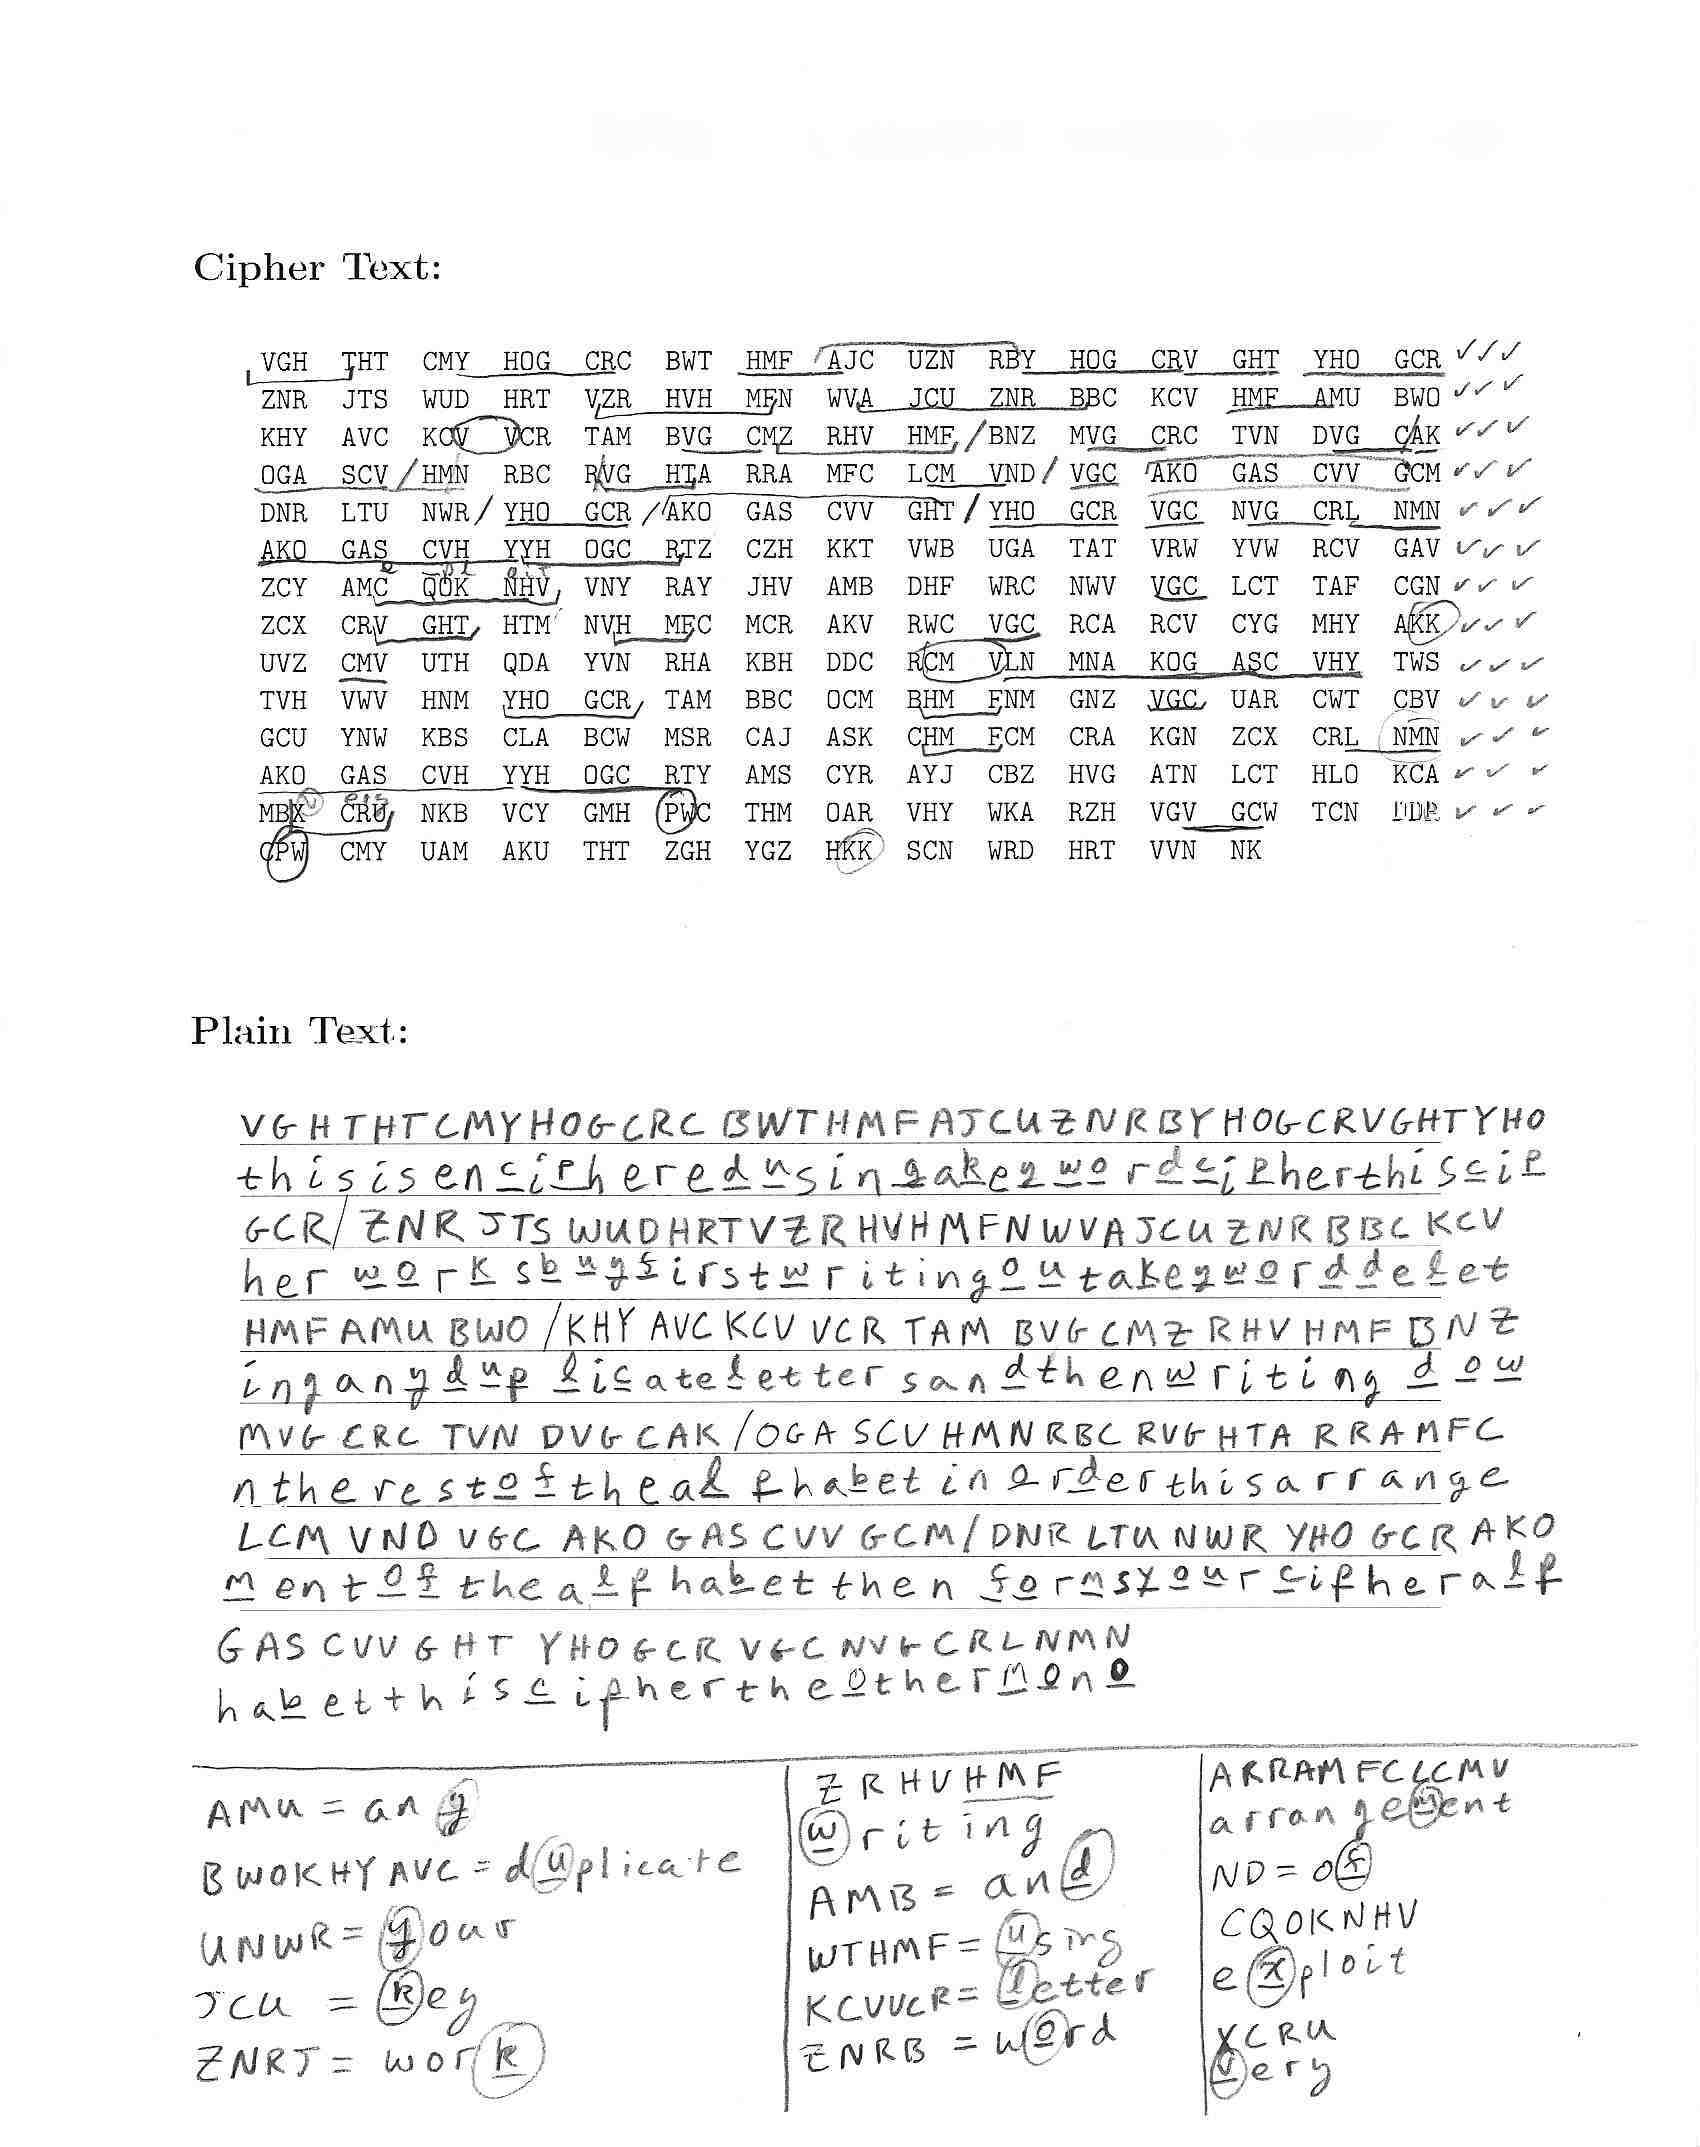 Cipher Text:
VGH THT CMY HOG CRC BWT HMF AJC UZN RBY HOG CRV GHT YHO GCR ✓✓✓
ZNR JTS WUD HRT VZR HVH MFN WVA JCU ZNR BBC KCV HMF AMU BWO ✓✓✓
KHY AVC KCV VCR TAM BVG CMZ RHV HMF/BNZ MVG CRC TVN DVG CAK ✓✓✓
OGA SCV/HMN RBC RVG HTA RRA MFC LCM VND/VGC AKO GAS CVV GCM ✓✓✓
DNR LTU NWR/YHO GCR/AKO GAS CVV GHT/YHO GCR VGC NVG CRL NMN ✓✓✓
AKO GAS CVH YYH OGC RTZ CZH KKT VWB UGA TAT VRW YVW RCV GAV ✓✓✓
e pl oit
ZCY AMC QOK NHV VNY RAY JHV AMB DHF WRC NWV VGC LCT TAF CGN ✓✓✓
ZCX CRV GHT HTM NVH MFC MCR AKV RWC VGC RCA RCV CYG MHY AKK ✓✓✓
UVZ CMV UTH QDA YVN RHA KBH DDC RCM VLN MNA KOG ASC VHY TWS ✓✓✓
TVH VWV HNM YHO GCR TAM BBC OCM BHM FNM GNZ VGC UAR CWT CBV ✓✓✓
GCU YNW KBS CLA BCW MSR CAJ ASK CHM FCM CRA KGN ZCX CRL NMN ✓✓✓
AKO GAS CVH YYH OGC RTY AMS CYR AYJ CBZ HVG ATN LCT HLO KCA ✓✓✓
MBX CRU NKB VCY GMH PWC THM OAR VHY WKA RZH VGV GCW TCN DDR ✓✓✓
CPW CMY UAM AKU THT ZGH YGZ HKK SCN WRD HRT VVN NK
Plain Text:
VGHTHTCMYHOGCRC BWTHMFAJCUZNRBYHOGCRVGHTYHO
thisisencipheredusingakeywordcipherthiscip
GCR/ZNR JTS WUDHRTVZRHVHMFNWVAJCUZNRBBC KCV
her worksbyfirstwritingoutakeyworddelet
HMFAMU BWO/KHY AVCKCV VCR TAM BVGCMZRHVHMFBNZ
inganydup licateletter sandthenwriting dow
MVG CRC TVN DVGCAK/OGA SCVHMNRBCRVGHTA RRAMFC
ntherestofthealphabetinorderthisarrange
LCM VND VGC AKO GAS CVV GCM/DNR LTUNWR YHO GCR AKO
mentofthealphabetthen formsyourcipheralp
GAS CVV GHT YHOGCR VGC NVGCRLNMN
habetthisciphertheothermono
AMU = any
BWOKHYAVC = duplicate
UNWR = your
JCU = key
ZNRJ = work
ZRHVHMF
writing
AMB = and
WTHMF = using
KCVVCR = letter
ZNRB = word
ARRAMFCLCMV
arrangement
ND = of
CQOKNHV
exploit
XCRU
very